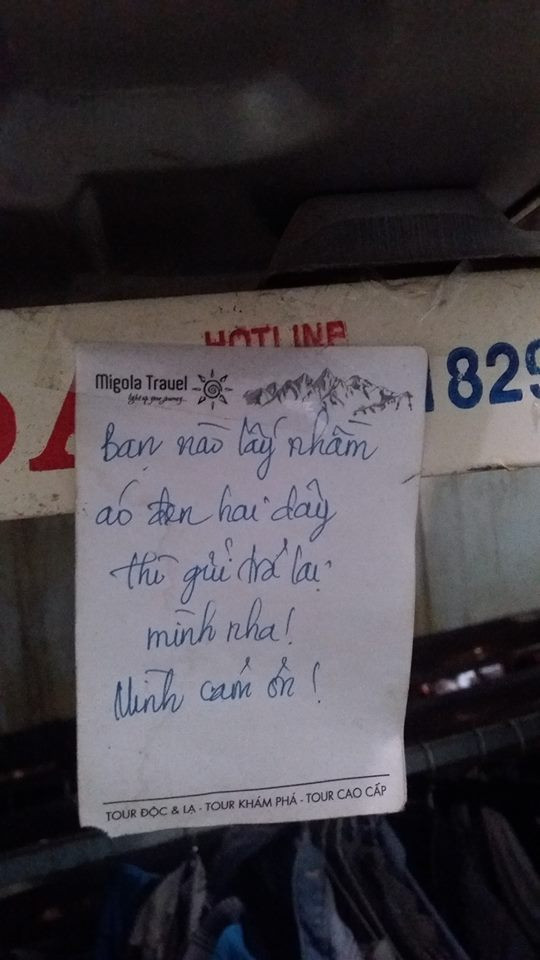 HOTLINE
1829
Migola Travel
light up your journey...
Bạn nào lấy nhầm
áo đen hai dây
thì gửi trả lại
mình nha!
Mình cảm ơn!
TOUR ĐỘC & LẠ - TOUR KHÁM PHÁ - TOUR CAO CẤP